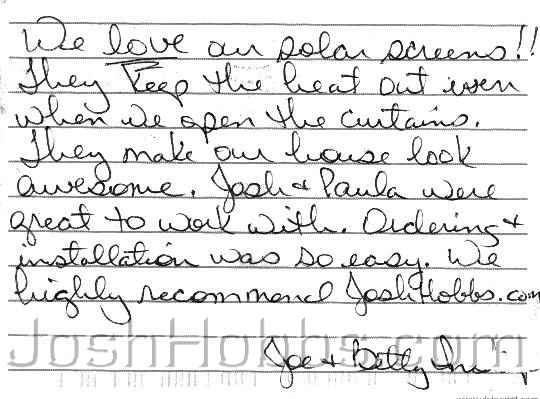 We love our solar screens!!
They keep the heat out even
when we open the curtains.
They make our house look
awesome. Josh + Paula were
great to work with. Ordering +
installation was so easy. We
highly recommend JoshHobbs.com
JoshHobbs.com
Joe + Betty